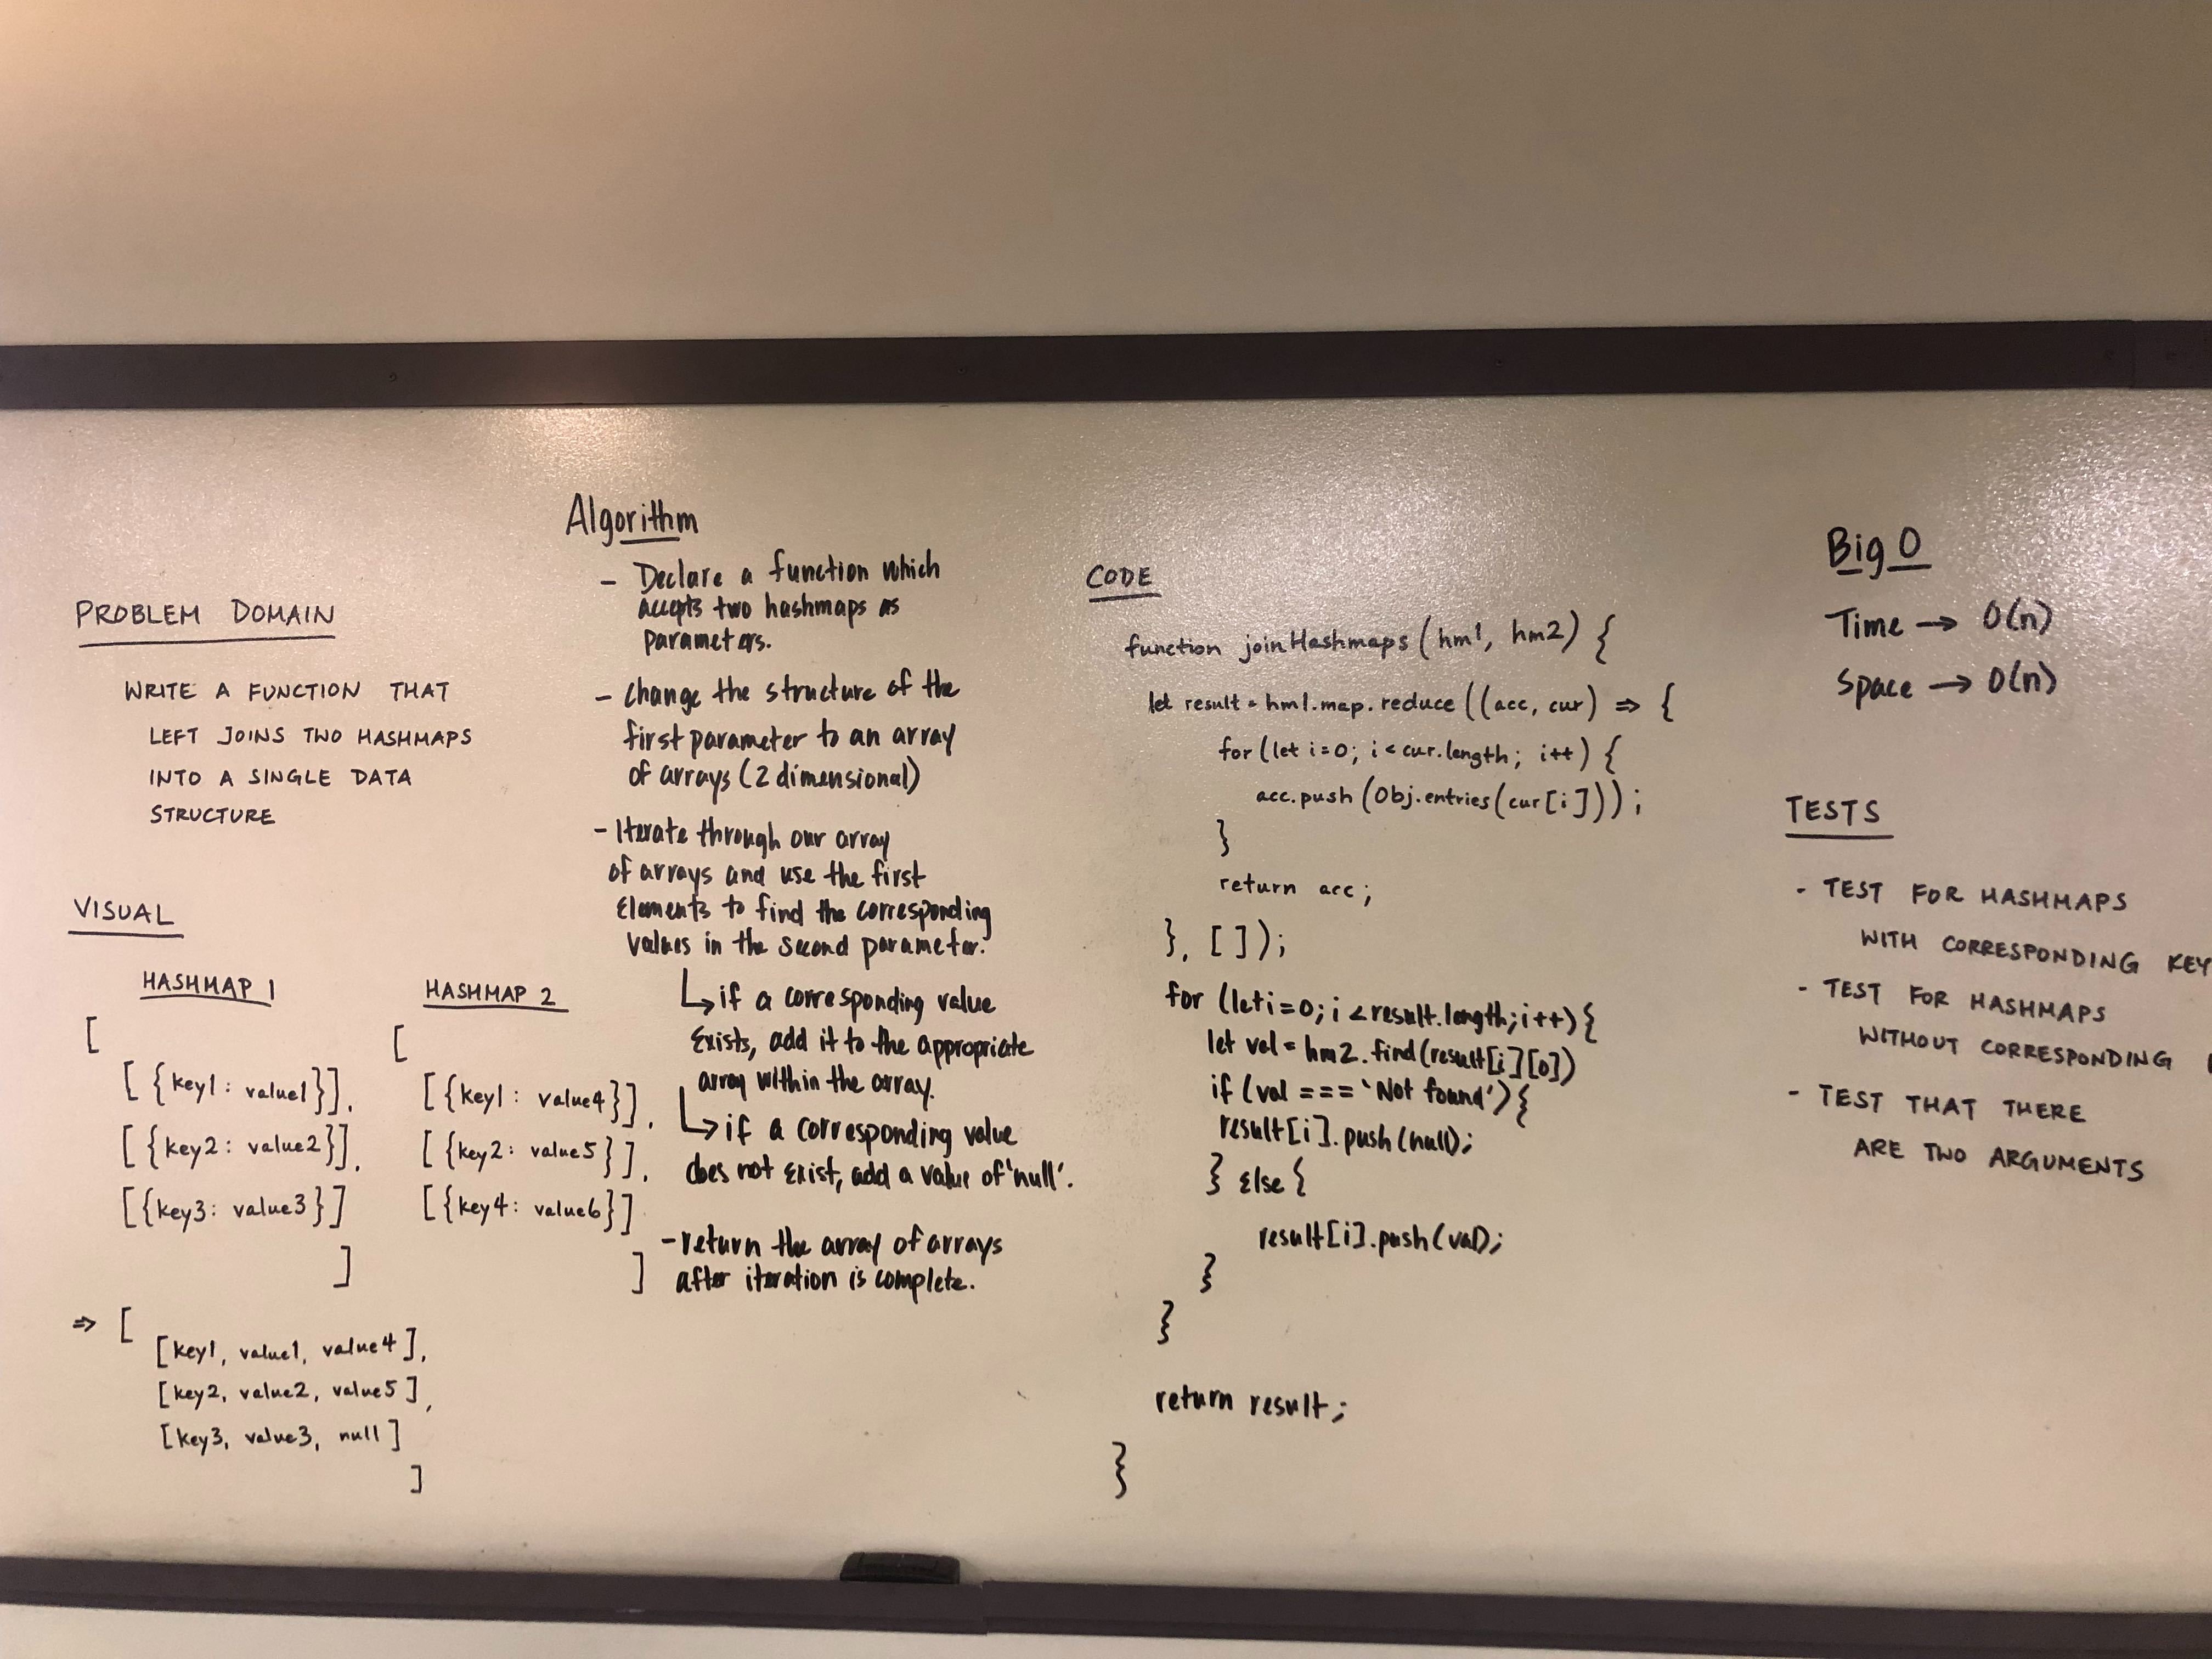 PROBLEM DOMAIN
WRITE A FUNCTION THAT
LEFT JOINS TWO HASHMAPS
INTO A SINGLE DATA
STRUCTURE
VISUAL
HASHMAP 1
[
[{key1: value1}],
[{key2: value2}],
[{key3: value3}]
]
HASHMAP 2
[
[{key1: value4}],
[{key2: value5}],
[{key4: value6}]
]
=> [
[key1, value1, value4],
[key2, value2, value5],
[key3, value3, null]
]
Algorithm
- Declare a function which
accepts two hashmaps as
parameters.
- Change the structure of the
first parameter to an array
of arrays (2 dimensional)
- Iterate through our array
of arrays and use the first
Elements to find the corresponding
values in the second parameter.
↳ if a corresponding value
Exists, add it to the appropriate
array within the array.
↳ if a corresponding value
does not Exist, add a value of 'null'.
- return the array of arrays
after iteration is complete.
CODE
function joinHashmaps (hm1, hm2) {
let result = hm1.map.reduce ((acc, cur) => {
for (let i=0; i < cur.length; i++) {
acc.push (Obj.entries (cur[i]));
}
return acc;
}, []);
for (let i=0; i < result.length; i++) {
let val = hm2.find(result[i][0])
if (val === 'Not found') {
result[i].push(null);
} Else {
result[i].push(val);
}
}
return result;
}
Big O
Time → O(n)
Space → O(n)
TESTS
- TEST FOR HASHMAPS
WITH CORRESPONDING KEY
- TEST FOR HASHMAPS
WITHOUT CORRESPONDING
- TEST THAT THERE
ARE TWO ARGUMENTS